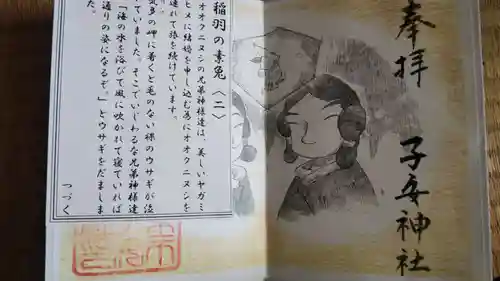 稲羽の素兎〈二〉
オオクニヌシの兄弟神様達は、美しいヤガミ
ヒメに結婚を申し込む為にオオクニヌシを
連れて旅を続けています。
気多の岬に着くと毛のない裸のウサギが泣
いていました。そこでいじわるな兄弟神様達
「海の水を浴びて風に吹かれて寝ていれば
通りの姿になるぞ。」とウサギをだましま
た。
つづく
奉拝 子安神社